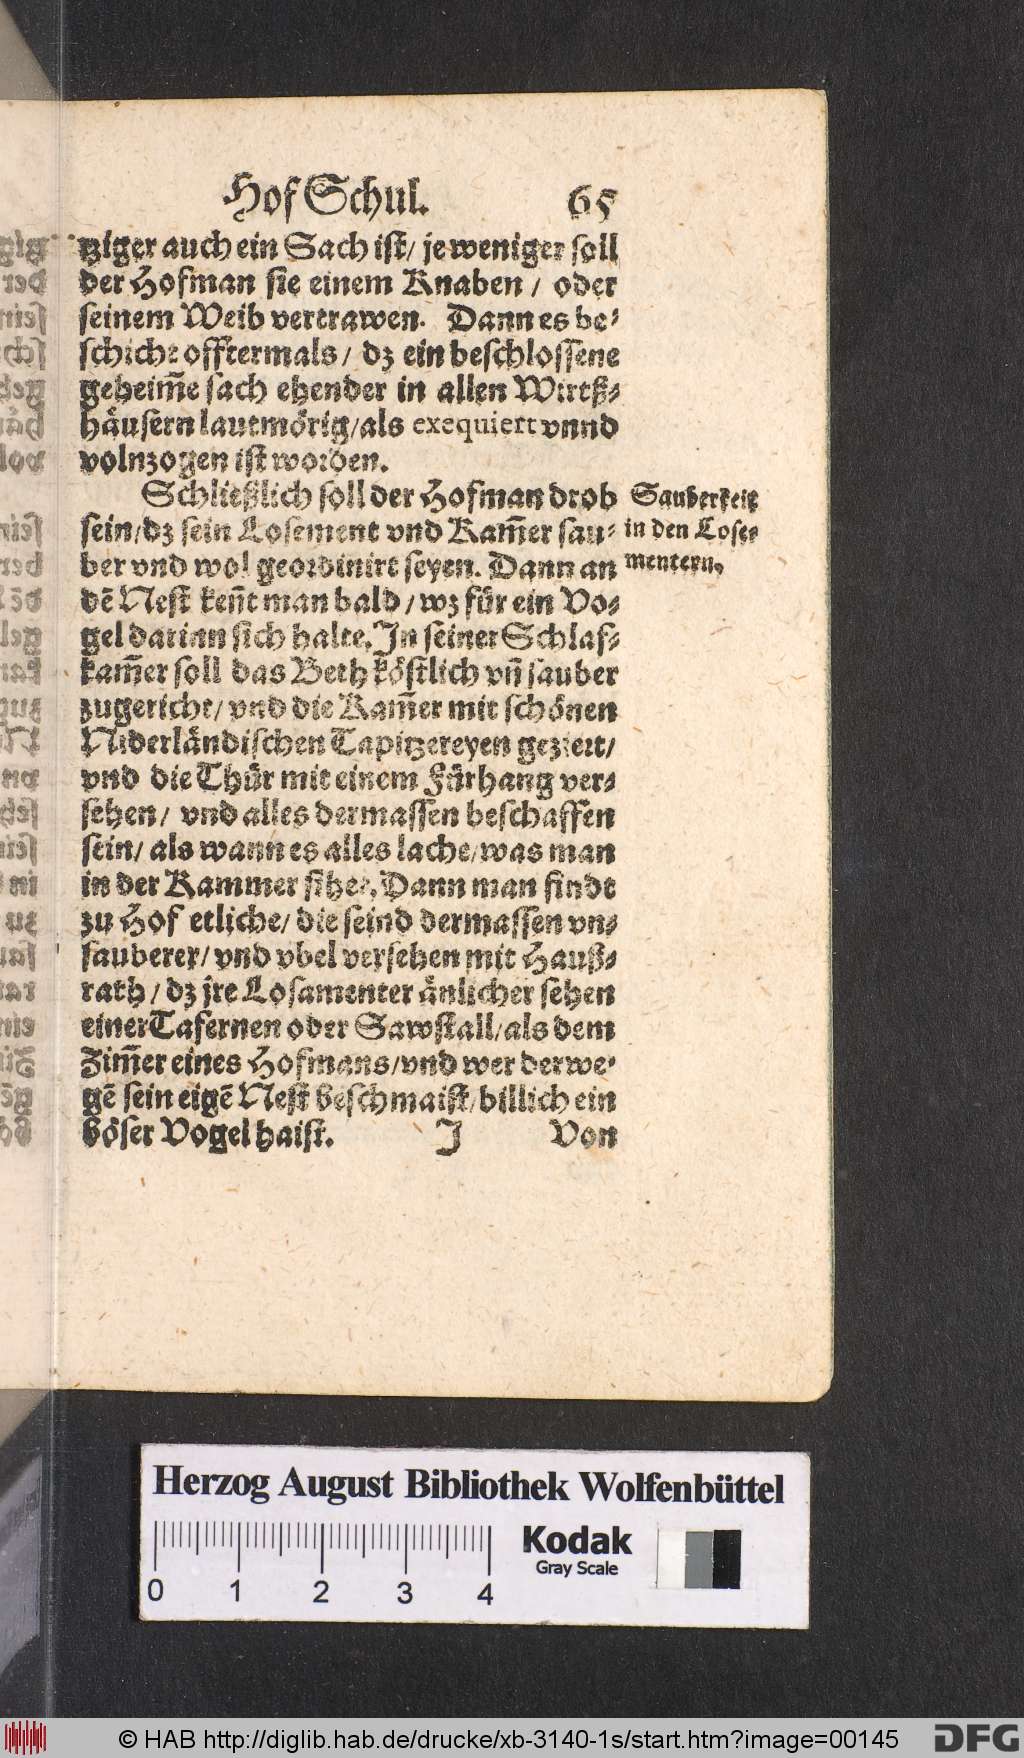 Hof Schul. 65
tziger auch ein Sach ist/ je weniger soll
der Hofman sie einem Knaben / oder
seinem Weib vertrawen. Dann es be-
schicht offtermals/ dz ein beschlossene
geheim̃e sach ehender in allen Wirtß-
häusern lautmörig/als exequiert vnnd
volnzogen ist worden.
Schließlich soll der Hofman drob
sein/dz sein Losement vnd Kam̃er sau-
ber vnd wol geordinirt seyen. Dann an
dẽ Nest keñt man bald / wz für ein Vo-
gel darinn sich halte. In seiner Schlaf-
kam̃er soll das Beth köstlich vñ sauber
zugericht/ vnd die Kam̃er mit schönen
Niderländischen Tapitzereyen geziert/
vnd die Thür mit einem Fürhang ver-
sehen/ vnd alles dermassen beschaffen
sein/ als wann es alles lache/was man
in der Kammer sihet. Dann man findt
zu Hof etliche/ die seind dermassen vn-
sauberer/ vnd vbel versehen mit Hauß-
rath / dz jre Losamenter änlicher sehen
einer Tafernen oder Sawstall/als dem
Zim̃er eines Hofmans/vnd wer derwe-
gẽ sein eigẽ Nest beschmaist/billich ein
böser Vogel haist. J Von
Sauberkeit
in den Lose-
mentern.
Herzog August Bibliothek Wolfenbüttel
Kodak
Gray Scale
0 1 2 3 4
© HAB http://diglib.hab.de/drucke/xb-3140-1s/start.htm?image=00145
DFG